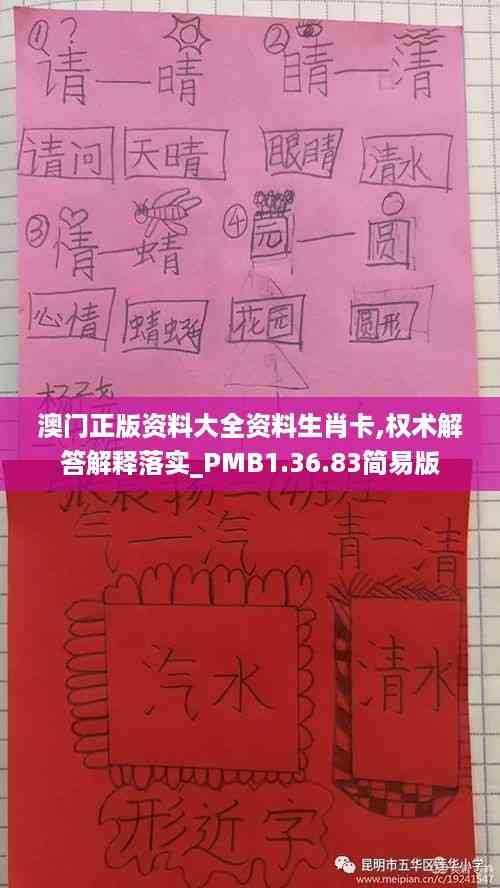 ① ?
请—晴
② 睛—清
请问 天晴 眼睛 清水
③ 情—蜻
④ 园—圆
心情 蜻蜓 花园 圆形
澳门正版资料大全资料生肖卡,权术解
答解释落实_PMB1.36.83简易版
气—汽
青—清
汽水
清水
形近字
昆明市五华区 华小学
www.meipian.cn/c/19241547